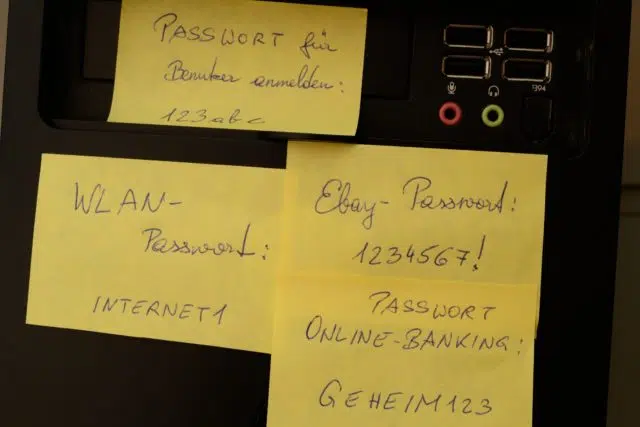 PASSWORT für
Benutzer anmelden:
123abc
E94
WLAN-
Passwort:
INTERNET1
Ebay-Passwort:
1234567!
PASSWORT
ONLINE-BANKING:
GEHEIM123